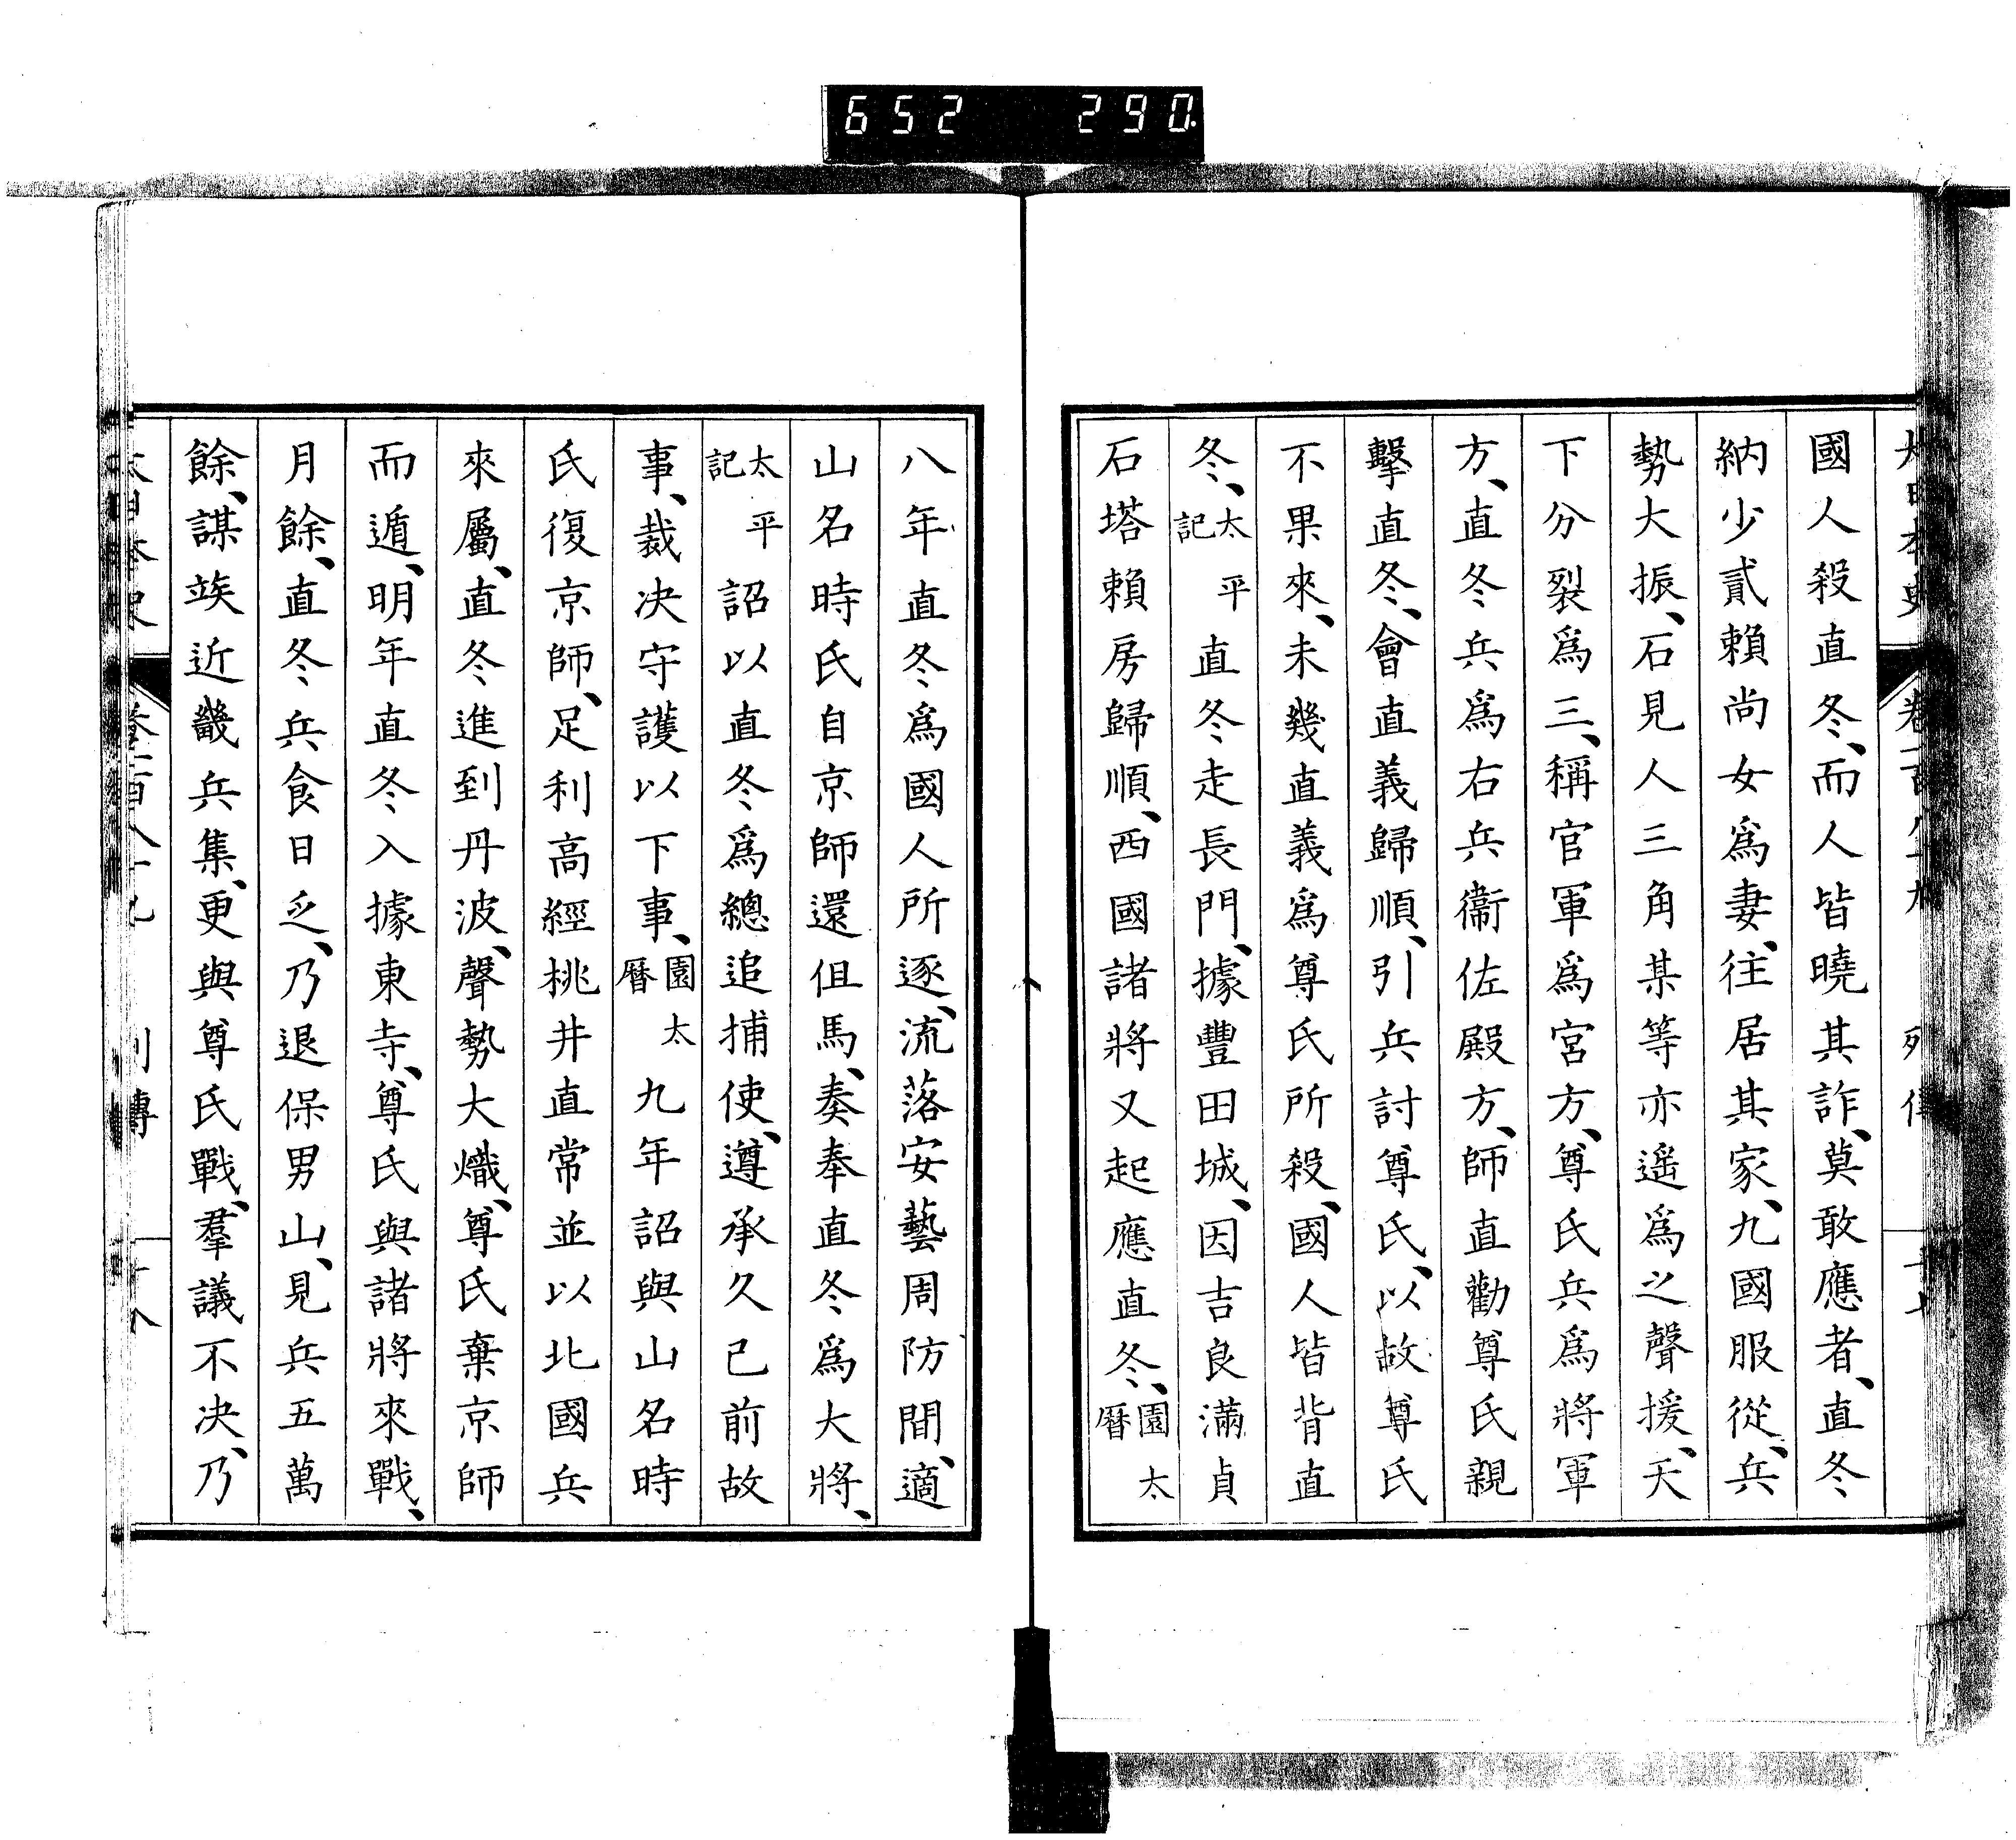 652 290
國人殺直冬、而人皆曉其詐、莫敢應者、直冬
納少貳賴尚女爲妻、往居其家、九國服從、兵
勢大振、石見人三角某等亦遥爲之聲援、天
下分裂爲三、稱官軍爲宮方、尊氏兵爲將軍
方、直冬兵爲右兵衞佐殿方、師直勸尊氏親
擊直冬、會直義歸順、引兵討尊氏、以故尊氏
不果來、未幾直義爲尊氏所殺、國人皆背直
冬、太平記直冬走長門、據豐田城、因吉良滿貞
石塔賴房歸順、西國諸將又起應直冬、園太曆
八年直冬爲國人所逐、流落安藝周防間、適
山名時氏自京師還伹馬、奏奉直冬爲大將、
太平記詔以直冬爲總追捕使、遵承久已前故
事、裁决守護以下事、園太曆九年詔與山名時
氏復京師、足利高經桃井直常並以北國兵
來屬、直冬進到丹波、聲勢大熾、尊氏棄京師
而遁、明年直冬入據東寺、尊氏與諸將來戰、
月餘、直冬兵食日乏、乃退保男山、見兵五萬
餘、謀竢近畿兵集、更與尊氏戰、羣議不决、乃